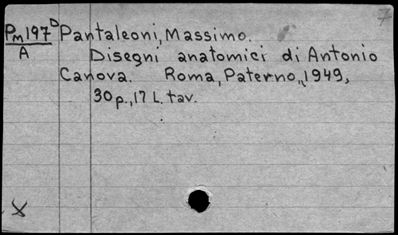 7
Pm197D Pantaleoni, Massimo.
A Disegni anatomici di Antonio
Canova. Roma, Paterno, 1949,
30p., 17 L. tav.
X